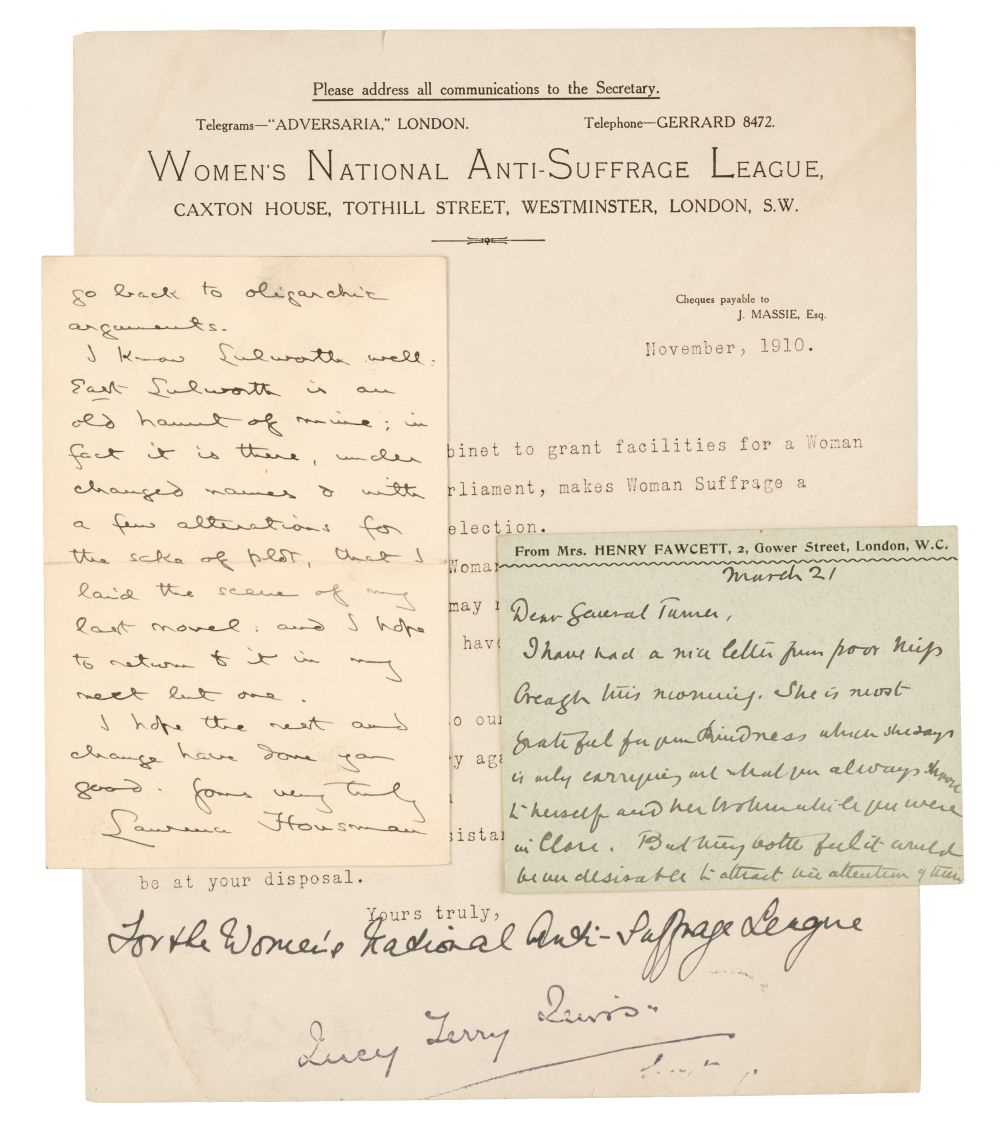 Please address all communications to the Secretary.
Telegrams—“ADVERSARIA,” LONDON.
Telephone—GERRARD 8472.
WOMEN'S NATIONAL ANTI-SUFFRAGE LEAGUE,
CAXTON HOUSE, TOTHILL STREET, WESTMINSTER, LONDON, S.W.
Cheques payable to
J. MASSIE, Esq.
November, 1910.
binet to grant facilities for a Woman
rliament, makes Woman Suffrage a
election.
Woman
may
have
o our
y aga
sistan
be at your disposal.
Yours truly,
For the Women's National Anti-Suffrage League
Lucy Terry Lewis
go back to oligarchic
arguments.
I know Lulworth well.
East Lulworth is an
old haunt of mine; in
fact it is there, under
changed names & with
a few alterations for
the sake of plot, that I
laid the scene of my
last novel: and I hope
to return to it in my
next but one.
I hope the rest and
change have done you
good. Yours very truly
Laurence Housman
From Mrs. HENRY FAWCETT, 2, Gower Street, London, W.C.
March 21
Dear General Turner,
I have had a nice letter from poor Miss
Creagh this morning. She is most
grateful for your kindness which she says
is only carrying out what you always
to herself and her brother while you were
in Clare. But they both feel it would
be undesirable to attract the attention of